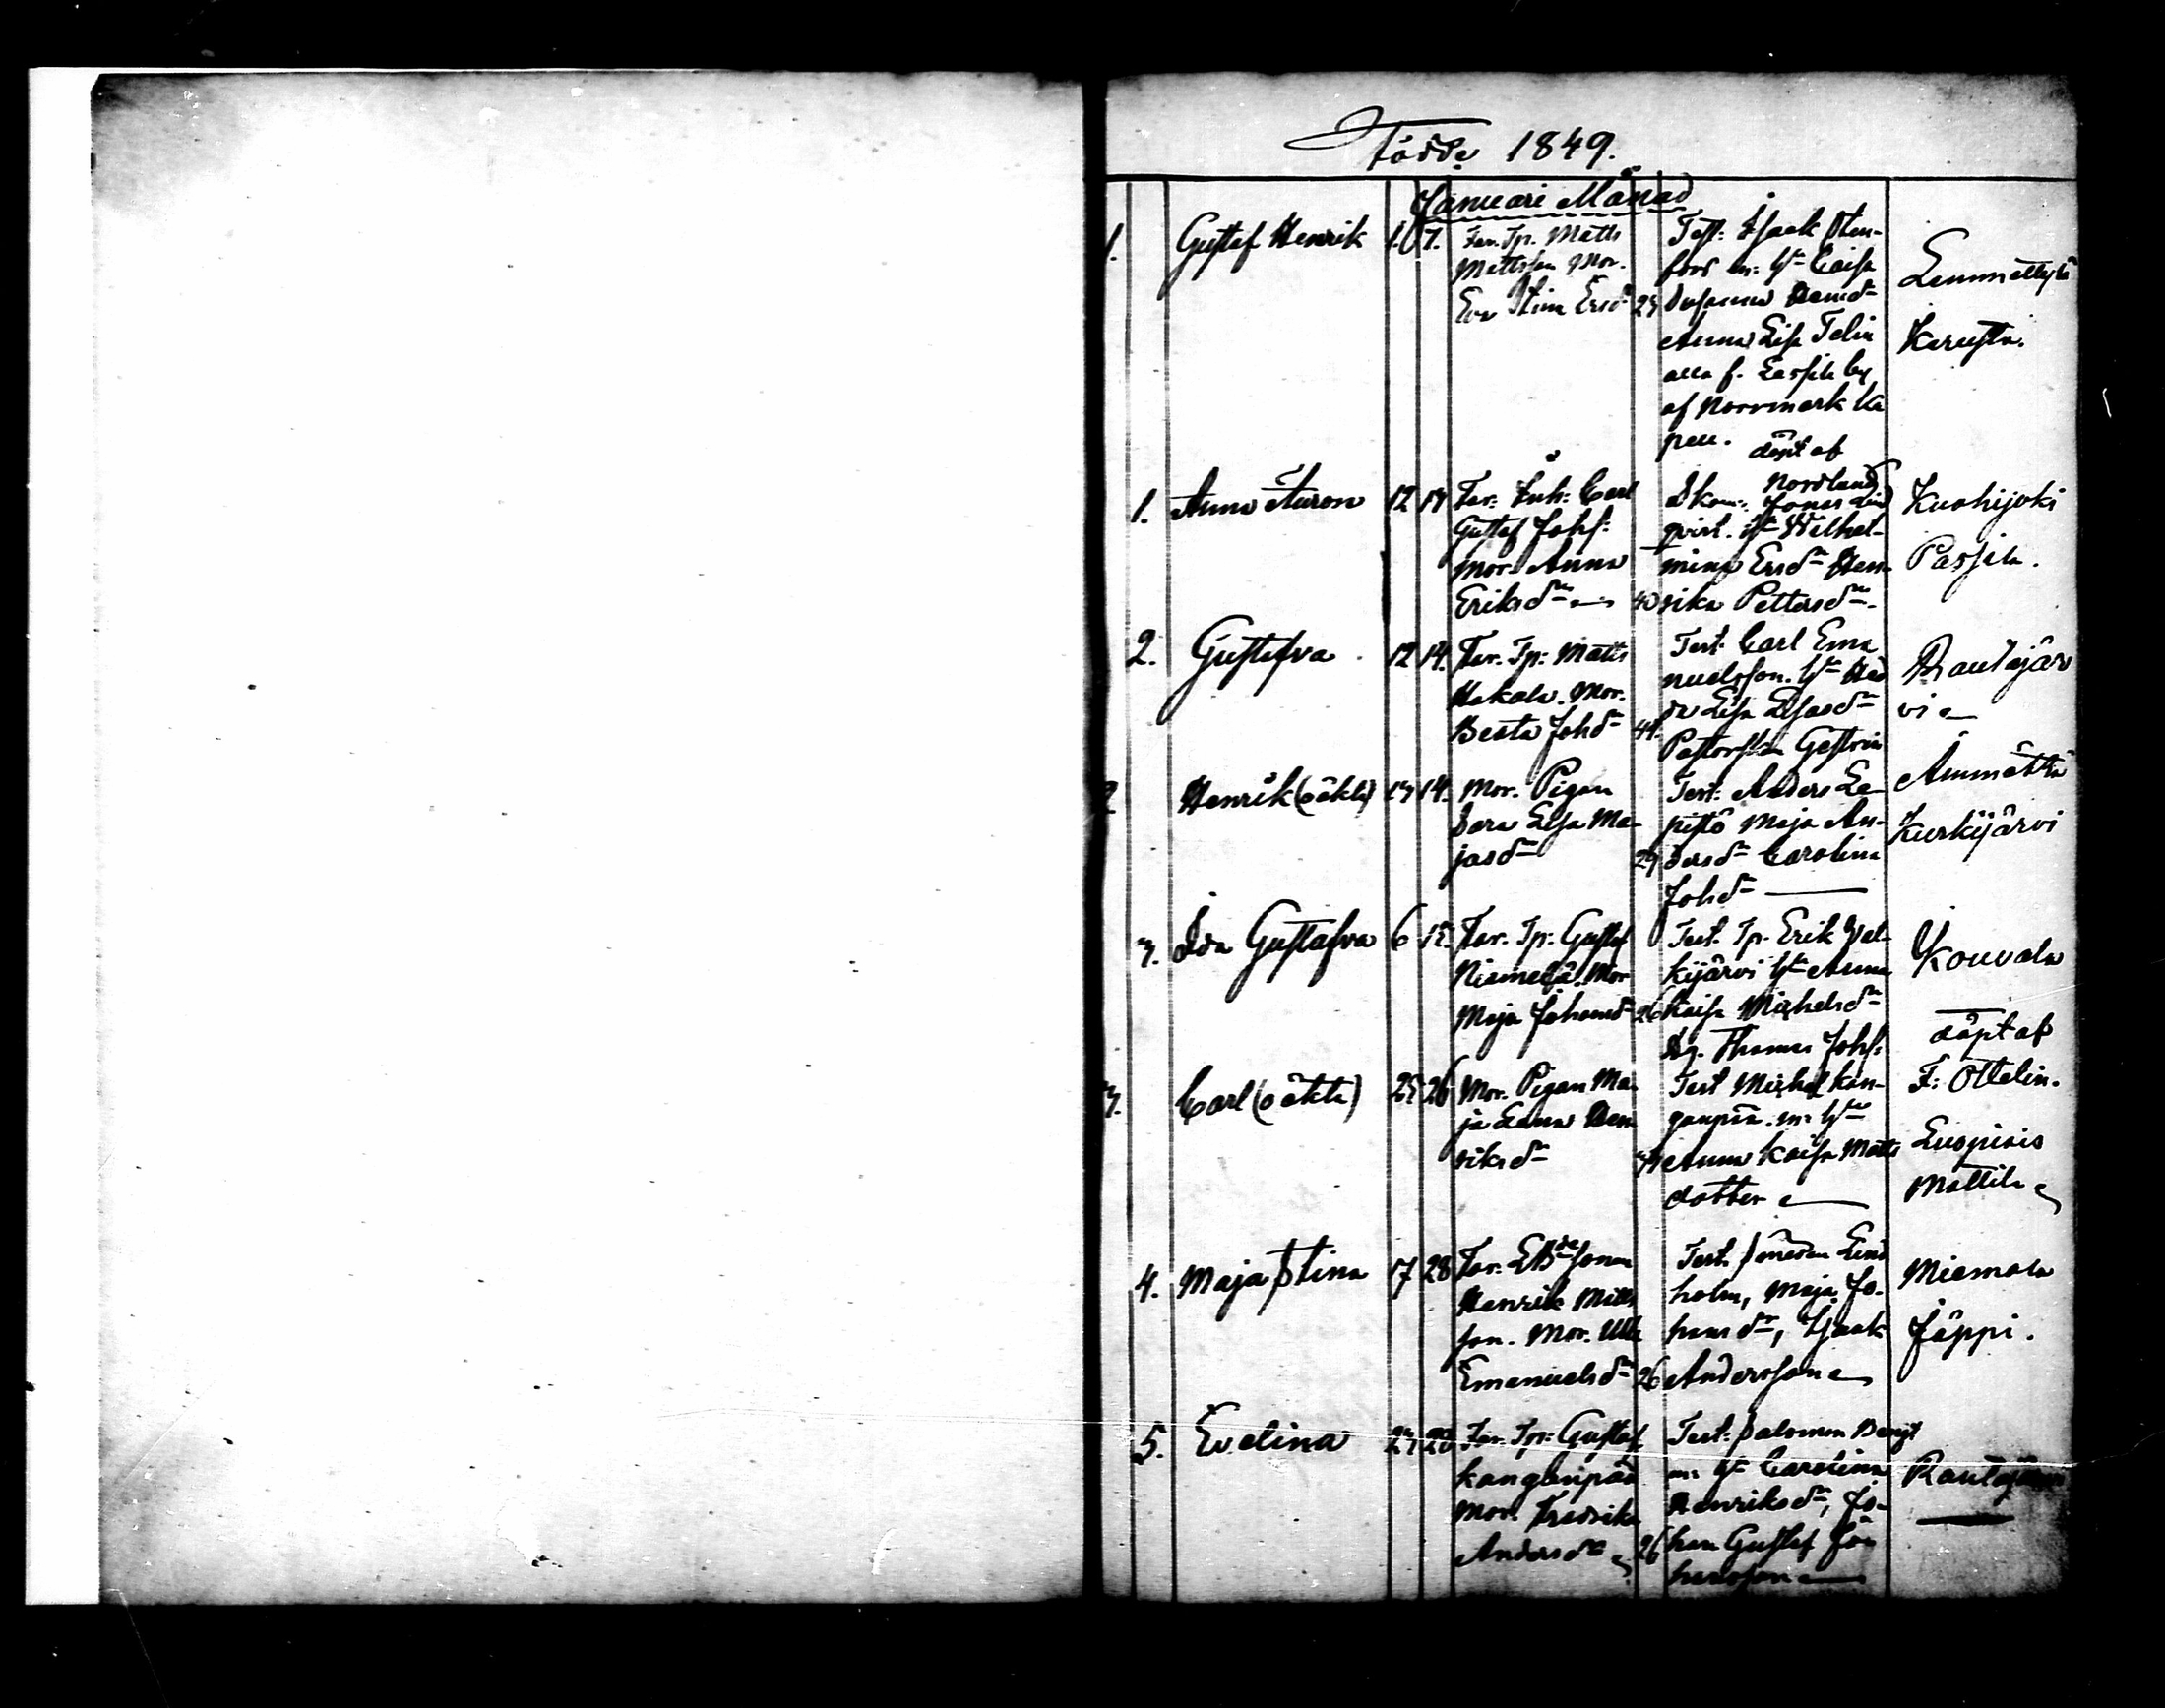 Födde 1849.
Januari Månad
1. Gustaf Henrik 1. 7. Far. Tp. Matts
Mattsson Mor.
Eva Stina Ersdr
Test: Isaak Sten-
fors m. h. Caisa
Susanna Hemdr
Anna Lisa Telin
alla f. Lassila by
af Norrmark Ka
pell.
Lemmettylä
Karusta.
1. Anna Aurora 12 14 Far: Inh: Carl
Gustaf Johs:
Mor. Anna
Eriksdr 40
döpt af
Nordlund
Skom: Jonas Lind
qvist. h. Wilhel-
mina Ersdr Hen-
rika Pettersdr
Kuohijoki
Passila.
2. Gustafva 12 14. Far. Tp: Matts
Hakala. Mor.
Beata Johdr 41.
Test. Carl Ema
nuelsson. h. Hed
da Lisa Elsasdr
Pastorskan Gestrin
Rautajär
vi
2 Henrik (oäkta) 13 14. Mor. Pigan
Sara Lisa Ma-
jasdr 29
Test: Anders Le-
pistö Maja An-
dersdr Carolina
Johdr
Ämmättä
Kurkijärvi
3. Ida Gustafva 6 15. Far. Tp: Gustaf
Niemelä. Mor
Maja Johansdr 26
Test. Tp. Erik Wel-
kijärvi h. Anna
Kaisa Michelsdr
Dg. Thomas Johs:
Kouvala
3. Carl (oäkta) 25 26 Mor. Pigan Ma-
ja Leena Hen
riksdr
Test Michel Kan-
ganpää. m. h.
Anna Kaisa Matts
dotter
döpt af
F: Ottelin.
Luopiois
Mattila
4. Maja Stina 17 28 Far. Sonen
Henrik Matts
son. Mor. Ulla
Emanuelsdr 26
Test. Lind
holm, Maja Jo-
hansdr, Isaak
Andersson
Miemola
Jäppi.
5. Evelina 23 28 Far. Tp: Gustaf
Kanganpää
Mor. Fredrika
Andersdr 26
Test: Salomon Bengt
m. h. Carolina
Henriksdr, Jo-
han Gustaf Jo
hansson
Rautajärvi